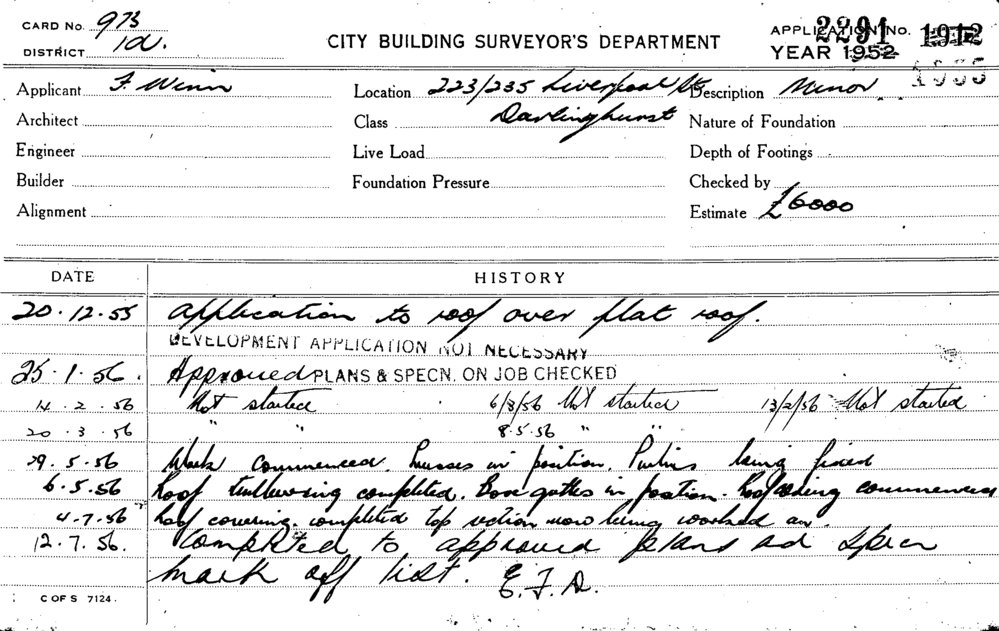 CARD No. 973
DISTRICT 1d.
CITY BUILDING SURVEYOR'S DEPARTMENT
APPLICATION No. 2291 1912
YEAR 1952 1955
Applicant F. Winn Location 223/235 Liverpool St Description Minor
Architect Class Darlinghurst Nature of Foundation
Engineer Live Load Depth of Footings
Builder Foundation Pressure Checked by
Alignment Estimate £6000
DATE HISTORY
20.12.55 Application to roof over flat roof.
DEVELOPMENT APPLICATION NOT NECESSARY
25.1.56. Approved PLANS & SPECN. ON JOB CHECKED
14.2.56 Not started 6/3/56 Not started 13/2/56 Not started
20.3.56 " " 8.5.56 " "
29.5.56 Work commenced. Trusses in position. Purlins being fixed
6.5.56 Roof timbering completed. Box gutters in position. Roof covering commenced
4.7.56 Roof covering completed top section now being worked on.
12.7.56. Completed to approved plans ad specn
mark off list. E.F.D.
C OF S 7124.